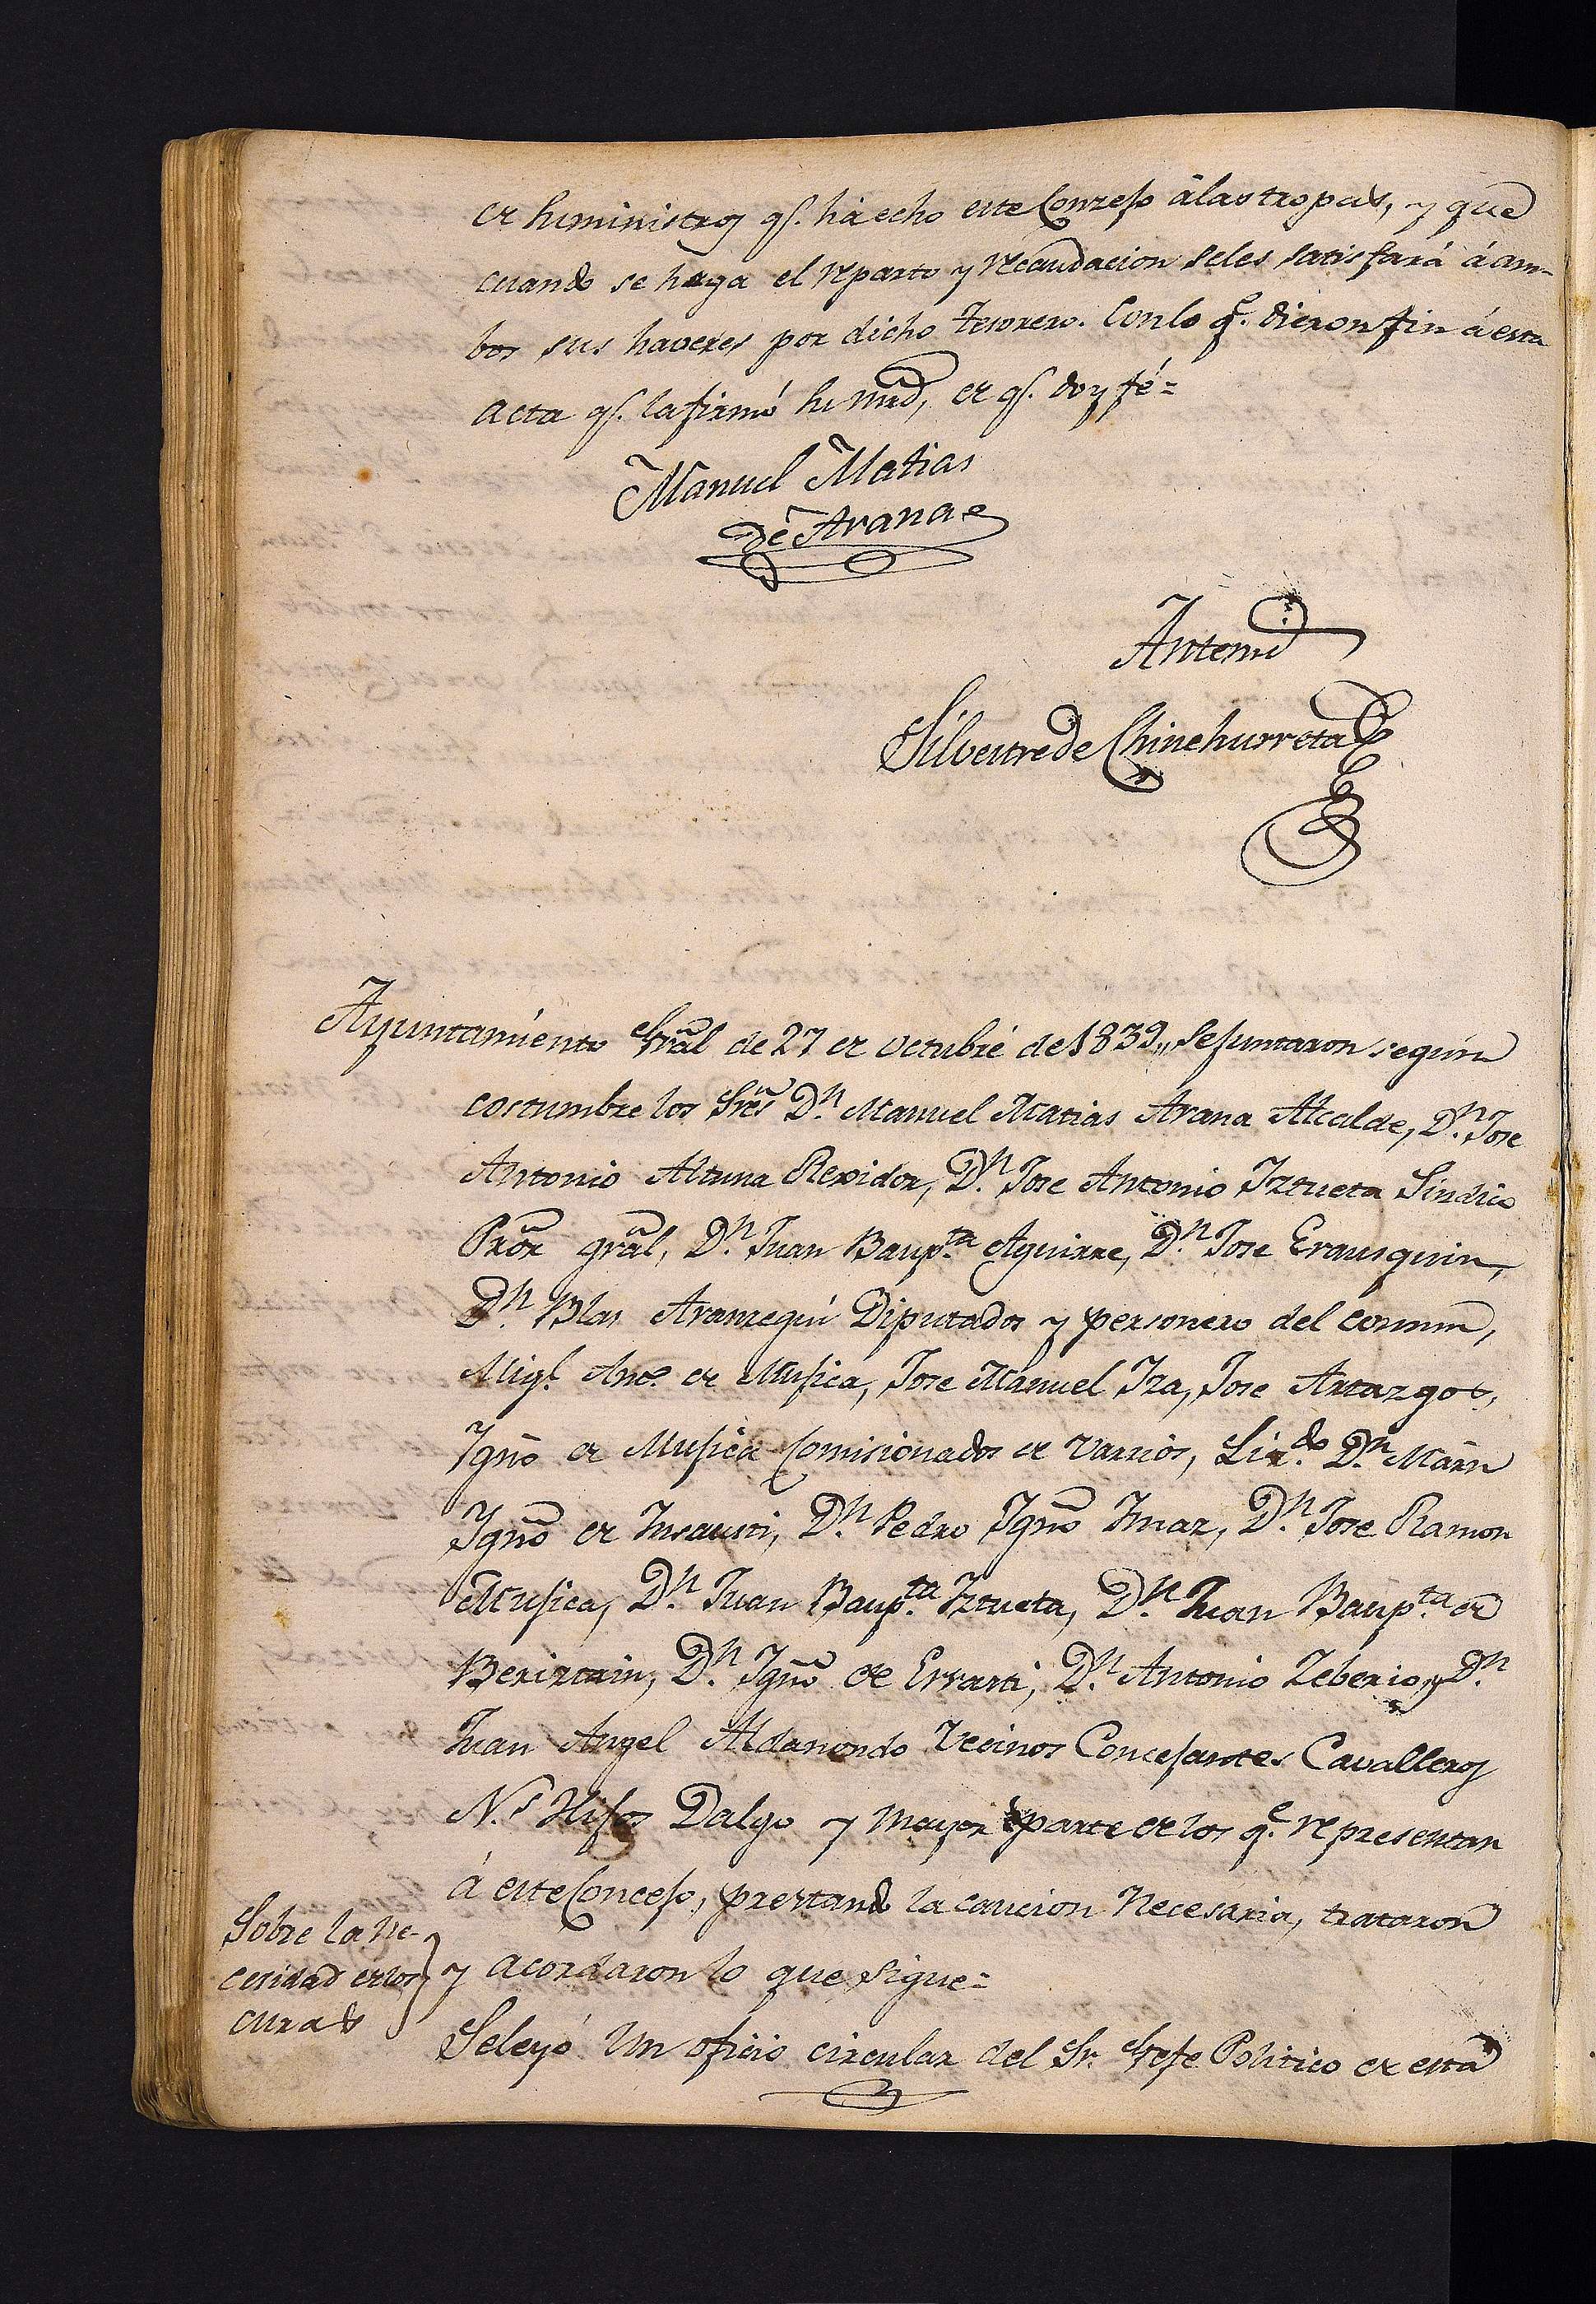 de suministros qe. há echo este Conzejo á las tropas, y que
cuando se haga el reparto y recaudacion se les satisfará á am-
bos sus haveres por dicho tesorero. Con lo qe. dieron fin á esta
acta qe. la firmó su mrd, de qe. doy fé =
Manuel Matias
de Arana
Antemi
Silvestre de Chinchurreta
Ayuntamiento Gral de 27 de octubre de 1839,, Se juntaron segun
costumbre los Sres Dn. Manuel Matias Arana Alcalde, Dn. Jose
Antonio Altuna Rexidor, Dn. Jose Antonio Iztueta Sindico
Pror gral, Dn. Juan Baupta. Aguirre, Dn. Jose Erausquin,
Dn. Blas Aramegui Diputados y personero del comun,
Migl. Anto. de Mujica, Jose Manuel Iza, Jose Artazgoz,
Igno de Mujica Comisionados de varrios, Licdo. Dn. Marn
Igno de Insausti, Dn. Pedro Igno Imaz, Dn. Jose Ramon
Mujica, Dn. Juan Baupta. Iztueta, Dn. Juan Baupta. de
Beriztain, Dn. Igno de Errasti, Dn. Antonio Zeberio, y Dn.
Juan Angel Aldanondo Vecinos Concejantes Cavalleros
Ns. Hijos Dalgo y mayor parte de los qe. representan
á este Concejo, prestando la caucion necesaria, trataron
y acordaron lo que sigue =
Sobre la ne-
cesidad de los
curas
Se leyó un oficio circular del Sr. Gefe Politico de esta